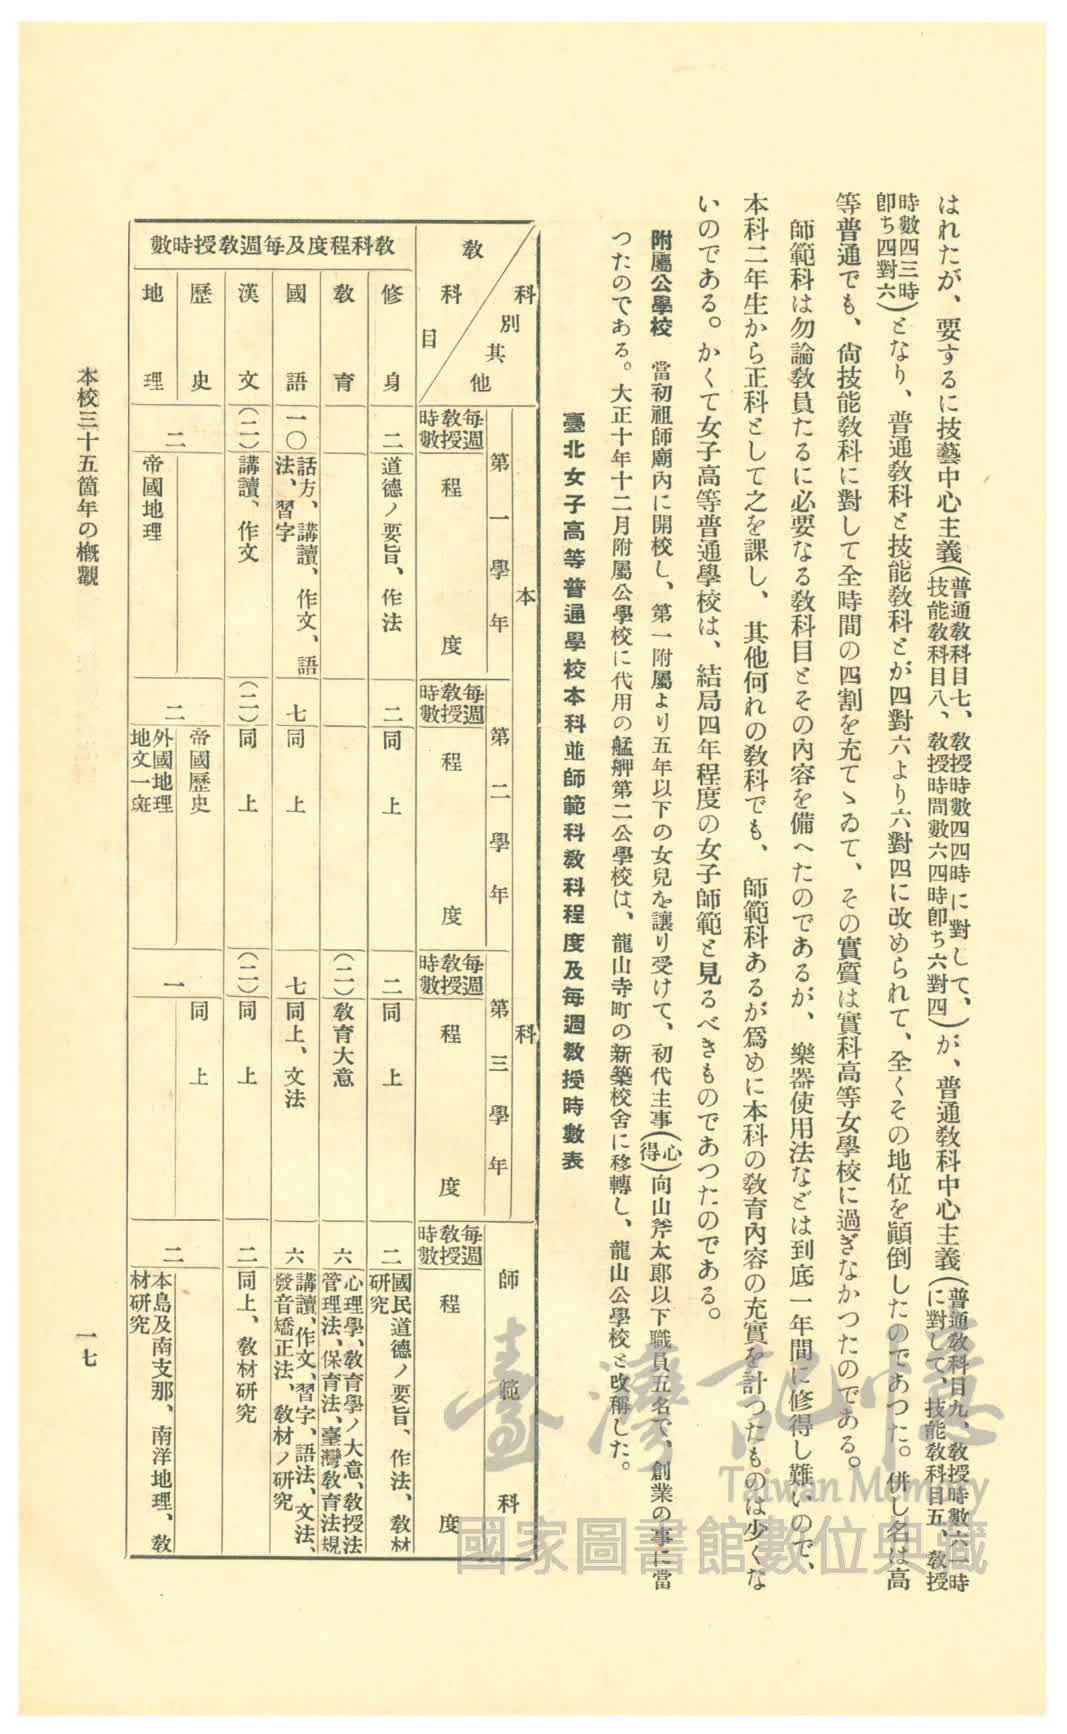 はれたが、要するに技藝中心主義(普通敎科目七、敎授時數四四時に對して、技能敎科目八、敎授時間數六四時卽ち六對四)が、普通敎科中心主義(普通敎科目九、敎授時數六一時に對して、技能敎科目五、敎授
時數四三時卽ち四對六)となり、普通敎科と技能敎科とが四對六より六對四に改められて、全くその地位を顚倒したのであつた。併し名は高
等普通でも、尙技能敎科に對して全時間の四割を充てゝゐて、その實質は實科高等女學校に過ぎなかつたのである。
師範科は勿論敎員たるに必要なる敎科目とその內容を備へたのであるが、樂器使用法などは到底一年間に修得し難いので、
本科二年生から正科として之を課し、其他何れの敎科でも、師範科あるが爲めに本科の敎育內容の充實を計つたものは少くな
いのである。かくて女子高等普通學校は、結局四年程度の女子師範と見るべきものであつたのである。
附屬公學校 當初祖師廟內に開校し、第一附屬より五年以下の女兒を讓り受けて、初代主事(心得)向山斧太郞以下職員五名で、創業の事に當
つたのである。大正十年十二月附屬公學校に代用の艋舺第二公學校は、龍山寺町の新築校舍に移轉し、龍山公學校と改稱した。
臺北女子高等普通學校本科並師範科敎科程度及每週敎授時數表
科別其他
敎科目
本科
第一學年
每週敎授時數
程度
第二學年
每週敎授時數
程度
第三學年
每週敎授時數
程度
師範科
每週敎授時數
程度
敎科程度及每週敎授時數
修身
二
道德ノ要旨、作法
二
同上
二
同上
二
國民道德ノ要旨、作法、敎材
硏究
敎育
(二)
敎育大意
六
心理學、敎育學ノ大意、敎授法
管理法、保育法、臺灣敎育法規
國語
一〇
話方、講讀、作文、語
法、習字
七
同上
七
同上、文法
六
講讀、作文、習字、語法、文法、
發音矯正法、敎材ノ硏究
漢文
(二)
講讀、作文
(二)
同上
(二)
同上
二
同上、敎材硏究
歷史
帝國歷史
同上
地理
二
帝國地理
二
外國地理
地文一斑
一
二
本島及南支那、南洋地理、敎
材硏究
本校三十五箇年の槪觀
一七
臺灣記憶
Taiwan Memory
國家圖書館數位典藏